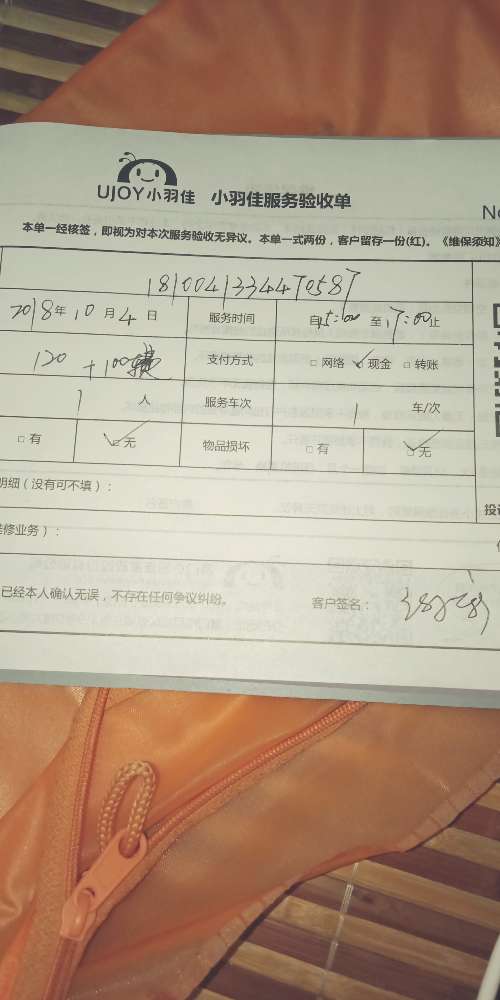 UJOY小羽佳 小羽佳服务验收单
No
本单一经核签，即视为对本次服务验收无异议。本单一式两份，客户留存一份(红)。《维保须知》
181004133447058
2018年10月4日 服务时间 自15:00至17:00止
120+100 支付方式 □网络 ✓现金 □转账
1人 服务车次 1车/次
□有 ☑无 物品损坏 □有 ☑无
明细（没有可不填）：
投
修业务）：
已经本人确认无误，不存在任何争议纠纷。 客户签名：